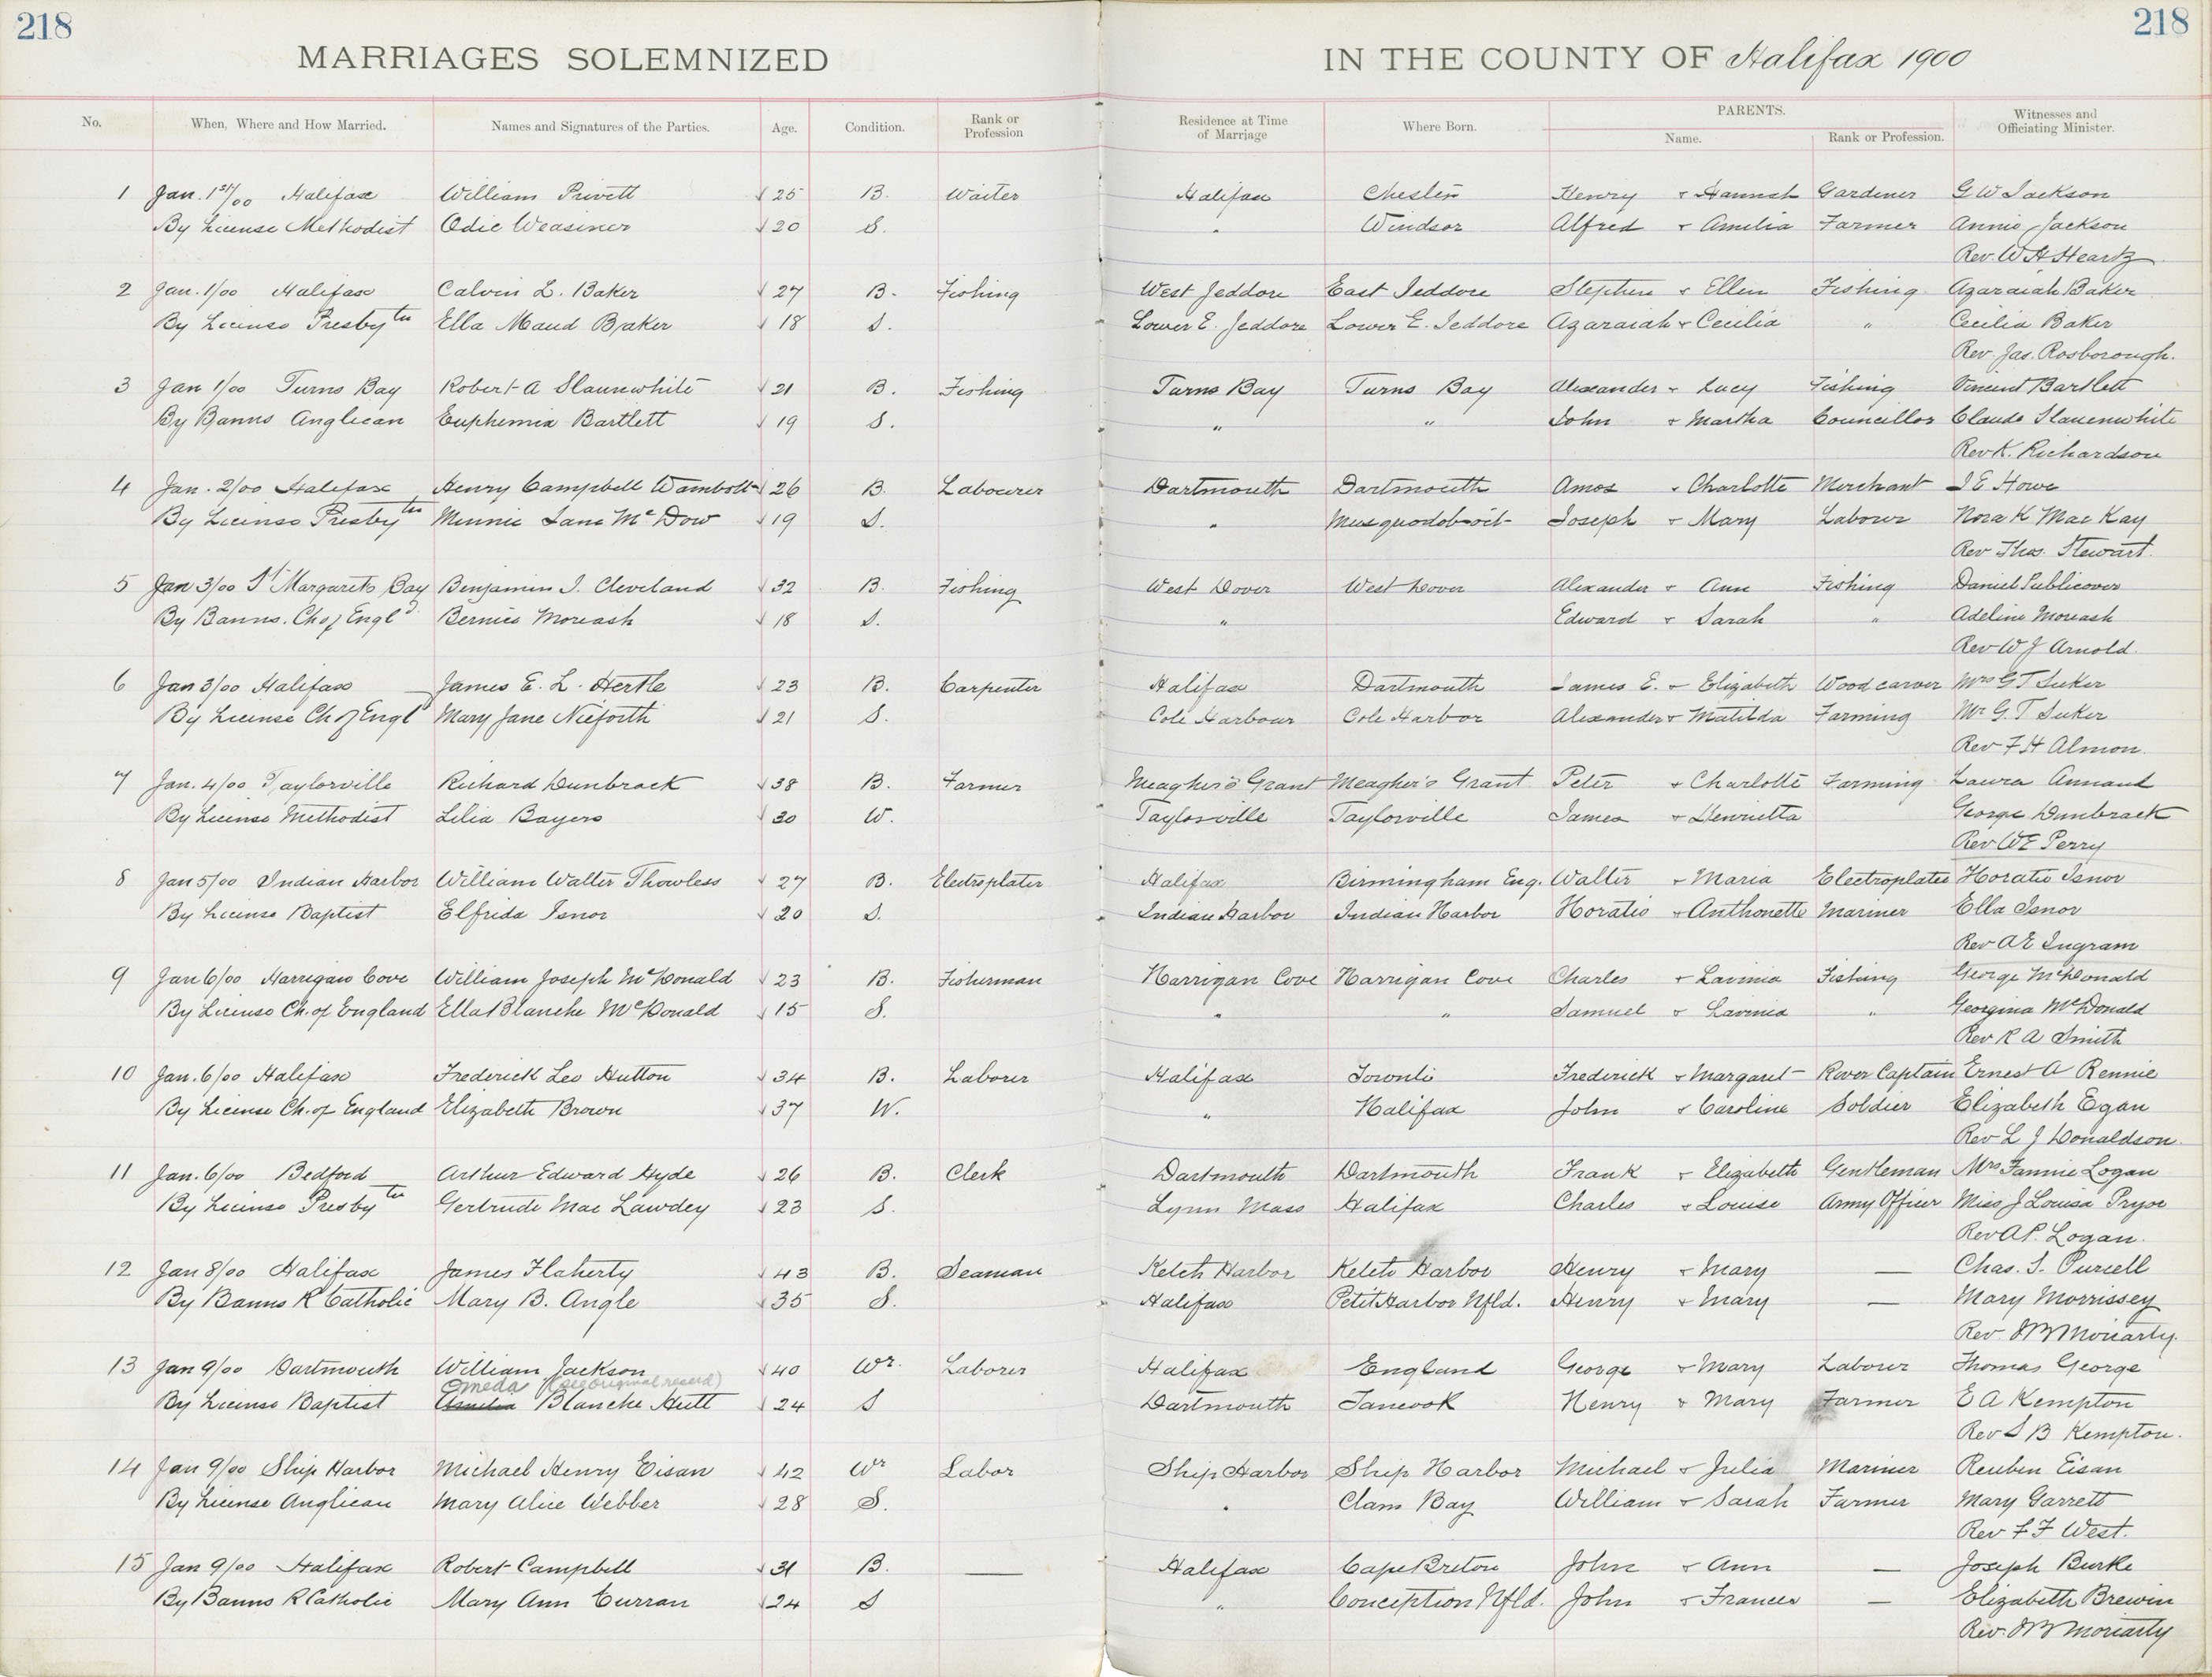 218
218
MARRIAGES SOLEMNIZED IN THE COUNTY OF Halifax 1900
No. When, Where and How Married. Names and Signatures of the Parties. Age. Condition. Rank or Profession Residence at Time of Marriage Where Born. PARENTS. Name. Rank or Profession. Witnesses and Officiating Minister.
1 Jan. 1st/00 Halifax William Privett 25 B. Waiter Halifax Chester Henry & Hannah Gardiner G W Jackson
By License Methodist Odie Weasiner 20 S. " Windsor Alfred & Amelia Farmer Annie Jackson
Rev. W H Heartz
2 Jan. 1/00 Halifax Calvin L. Baker 27 B. Fishing West Jeddore East Jeddore Stephen & Ellen Fishing Azaraiah Baker
By License Presbytn Ella Maud Baker 18 S. Lower E. Jeddore Lower E. Jeddore Azaraiah & Cecilia " Cecilia Baker
Rev. Jas. Rosborough.
3 Jan 1/00 Turns Bay Robert A Slaunwhite 21 B. Fishing Turns Bay Turns Bay Alexander & Lucy Fishing Vincent Bartlett
By Banns Anglican Euphemia Bartlett 19 S. " " John & Martha Councillor Claude Slauenwhite
Rev K. Richardson
4 Jan. 2/00 Halifax Henry Campbell Wambolt 26 B. Labourer Dartmouth Dartmouth Amos & Charlotte Merchant I E Howe
By License Presbytn Minnie Jane McDow 19 S. " Musquodoboit Joseph & Mary Labourer Nora K MacKay
Rev Thos. Stewart.
5 Jan 3/00 St Margarets Bay Benjamin I. Cleveland 32 B. Fishing West Dover West Dover Alexander & Ann Fishing Daniel Publicover
By Banns. Ch of Engld Bernice Moreash 18 S. " Edward & Sarah " Adeline Moreash
Rev W J Arnold.
6 Jan 3/00 Halifax James E. L. Hertle 23 B. Carpenter Halifax Dartmouth James E. & Elizabeth Wood carver Mrs G T Suker
By License Ch of Engl Mary Jane Nieforth 21 S. Cole Harbour Cole Harbor Alexander & Matilda Farming Mr G. T Suker
Rev F H Almon.
7 Jan. 4/00 Taylorville Richard Dunbrack 38 B. Farmer Meagher's Grant Meagher's Grant Peter & Charlotte Farming Laura Annand
By License Methodist Lilia Bayers 30 W. Taylorville Taylorville James & Henrietta George Dunbrack
Rev W E Perry
8 Jan 5/00 Indian Harbor William Walter Thowless 27 B. Electroplater Halifax Birmingham Eng. Walter & Maria Electroplater Horatio Isnor
By License Baptist Elfrida Isnor 20 S. Indian Harbor Indian Harbor Horatio & Anthonette Mariner Ella Isnor
Rev A E Ingram
9 Jan 6/00 Harrigan Cove William Joseph McDonald 23 B. Fisherman Harrigan Cove Harrigan Cove Charles & Lavinia Fishing George McDonald
By License Ch. of England Ella Blanche McDonald 15 S. " " Samuel & Lavinia " Georgina McDonald
Rev R A Smith
10 Jan. 6/00 Halifax Frederick Leo Hutton 34 B. Laborer Halifax Toronto Frederick & Margaret River Captain Ernest A Rennie
By License Ch. of England Elizabeth Brown 37 W. " Halifax John & Caroline Soldier Elizabeth Egan
Rev L J Donaldson.
11 Jan. 6/00 Bedford Arthur Edward Hyde 26 B. Clerk Dartmouth Dartmouth Frank & Elizabeth Gentleman Mrs Fannie Logan
By License Presbytn Gertrude Mae Lawdey 23 S. Lynn Mass Halifax Charles & Louise Army Officer Miss J Louisa Pryor
Rev A P. Logan.
12 Jan 8/00 Halifax James Flaherty 43 B. Seaman Ketch Harbor Ketch Harbor Henry & Mary — Chas. S. Purcell
By Banns R Catholic Mary B. Angle 35 S. Halifax Petit Harbor Nfld. Henry & Mary — Mary Morrissey
Rev. Moriarty.
13 Jan 9/00 Dartmouth William Jackson 40 Wr. Laborer Halifax England George & Mary Labourer Thomas George
Omeda (see original record)
By License Baptist Amelia Blanche Hutt 24 S Dartmouth Tancook Henry & Mary Farmer E A Kempton
Rev S B Kempton.
14 Jan 9/00 Ship Harbor Michael Henry Eisan 42 Wr Labor Ship Harbor Ship Harbor Michael & Julia Mariner Reuben Eisan
By License Anglican Mary Alice Webber 28 S. " Clam Bay William & Sarah Farmer Mary Garrett
Rev F F West.
15 Jan 9/00 Halifax Robert Campbell 31 B. — Halifax Cape Breton John & Ann — Joseph Burke
By Banns R Catholic Mary Ann Curran 24 S " Conception Nfld. John & Frances — Elizabeth Brewin
Rev. Moriarty